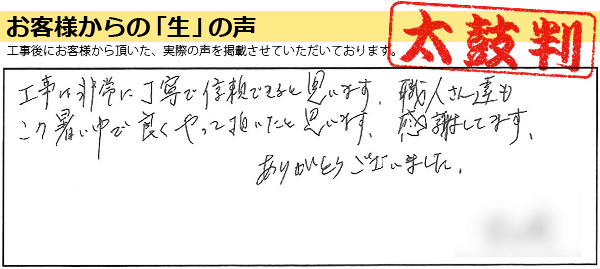 お客様からの「生」の声
工事後にお客様から頂いた、実際の声を掲載させていただいております。
太鼓判
工事は非常に丁寧で信頼できると思います。職人さん達も
この暑い中で良くやって頂いたと思います。感謝してます。
ありがとうございました。